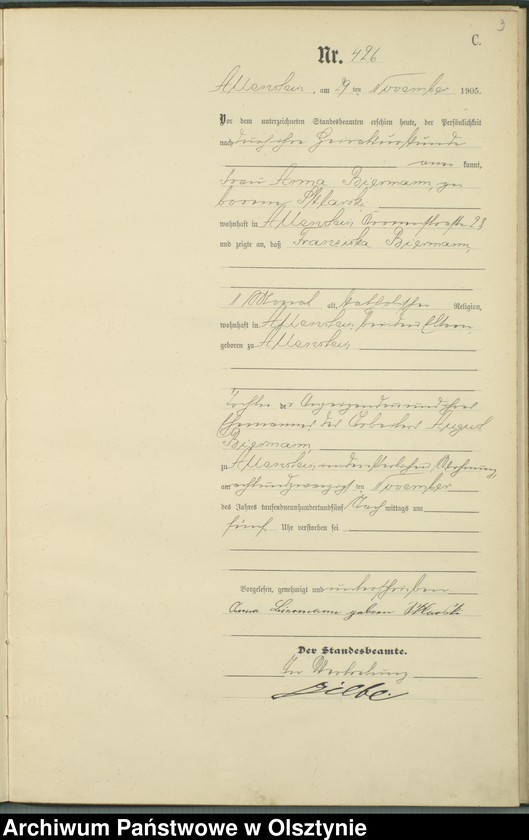 3
C.
Nr. 426
Allenstein, am 29 ten November 1905.
Vor dem unterzeichneten Standesbeamten erschien heute, der Persönlichkeit
nach durch ihre Heiratsurkunde
aner kannt,
Frau Anna Biermann, ge
borene
wohnhaft in Allenstein straße 23
und zeigte an, daß Franziska Biermann,
1 Monat alt, katholischer Religion,
wohnhaft in Allenstein, bei den Eltern
geboren zu Allenstein,
Tochter der Anzeigenden und ihres
Ehemannes, des Arbeiters August
Biermann,
zu Allenstein, in der elterlichen Wohnung,
am achtundzwanzigsten November
des Jahres tausendneunhundertundfünf Nach mittags um
fünf Uhr verstorben sei
Vorgelesen, genehmigt und unterschrieben
Anna Biermann geboren
Der Standesbeamte.
In Vertretung
Archiwum Państwowe w Olsztynie